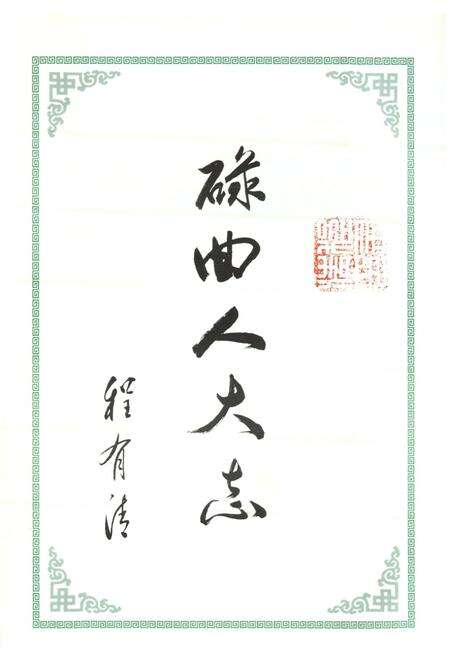 碌曲人大志
程有清